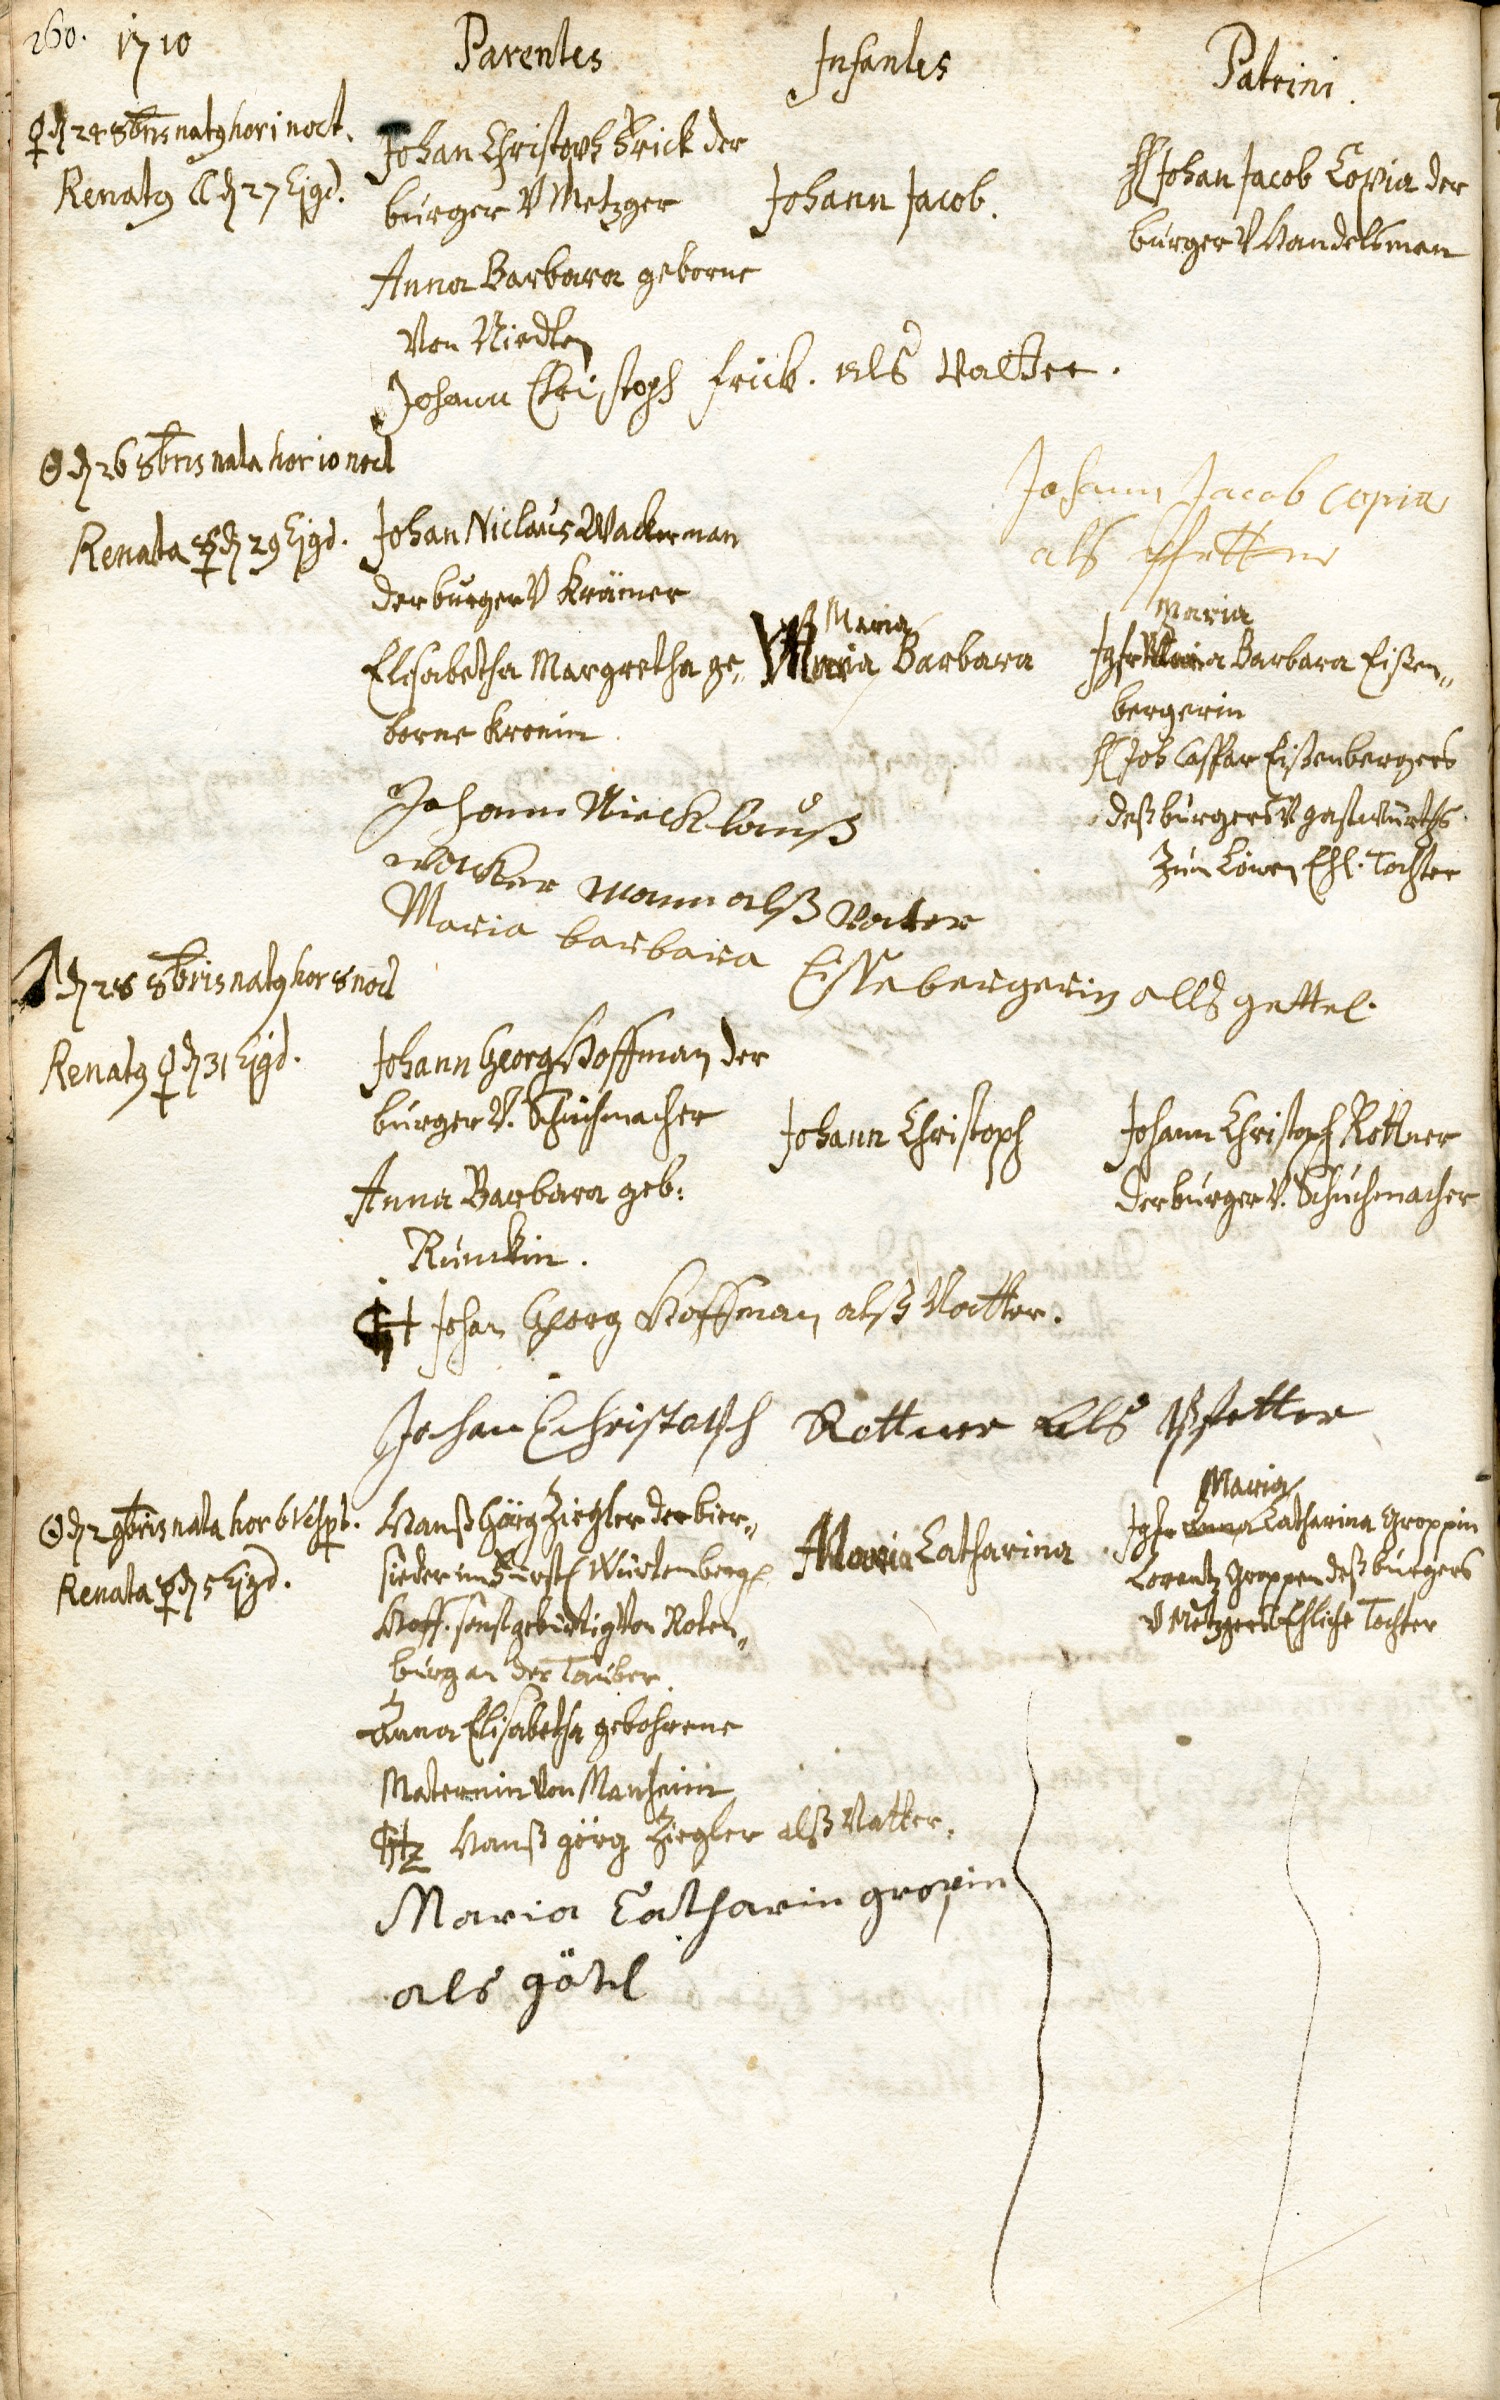 260. 1710
Parentes
Infantes
Patrini.
♀ d 24 8bris natq hor 1 noct.
Renatq ☾ d 27 Ejqd.
Johan Christoph Frick der
burger V Metzger
Anna Barbara geborne
Von Riedlen
Johann Jacob.
H Johan Jacob Copia der
burger V Handelsman
Johann Christoph frick. als Vatter.
Johann Jacob Copia
als Pfetter
☉ d 26 8bris nata hor 10 noct
Renata ☿ d 29 Ejqd.
Johan Niclaus Wackerman
der burger V Krämer
Elisabetha Margretha ge„
borne Kronin.
Maria
Maria Barbara
Maria
Jgfr Barbara Eißen„
bergerin
H Joh Casspar Eißenbergers
deß burgers V gastwürths
Zum Löwen Ehl. Tochter
Johann Nicklauß
wacker mann alß Vatter
Maria barbara Eissebergerin alls gettel.
d 28 8bris natq hor 8 noct
Renatq ♀ d 31 Ejqd.
Johann Georg Hoffman der
burger V. Schuhmacher
Anna Barbara geb:
Runckin.
Johann Christoph
Johann Christoph Rottner
der burger V. Schuhmacher
Johan Georg Hoffman alß Vatter.
Johan Christoph Rottner als Pfetter
☉ d 2 9bris nata hor 6 Vesp.
Renata ☿ d 5 Ejqd.
Hanß Görg Ziegler der bier„
sieder im Fürstl Würtemberg.
Hoff. sonst gebürtig Von Roten„
burg an der Tauber.
Anna Elisabetha gebohrene
Maternin Von Manheim
Maria Catharina
Maria
Jgfr Anna Catharina Groppin
Lorentz Groppen deß burgers
V Metzgers Ehliche Tochter
Hanß görg Ziegler alß Vatter.
Maria Catharin gropin
als götel